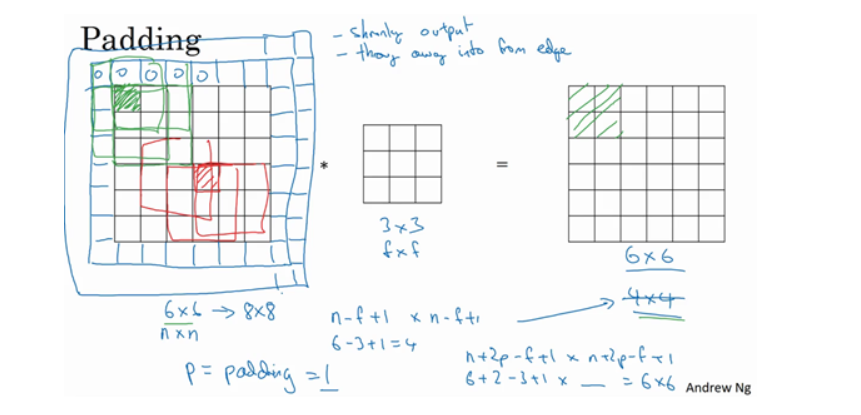 Padding
- shrinky output
- throw away info from edge
0 0 0 0 0
*
=
3x3
fxf
6x6
4x4
6x6 → 8x8
nxn
n-f+1 x n-f+1
6-3+1=4
p = padding = 1
n+2p-f+1 x n+2p-f+1
6+2-3+1 x __ = 6x6
Andrew Ng